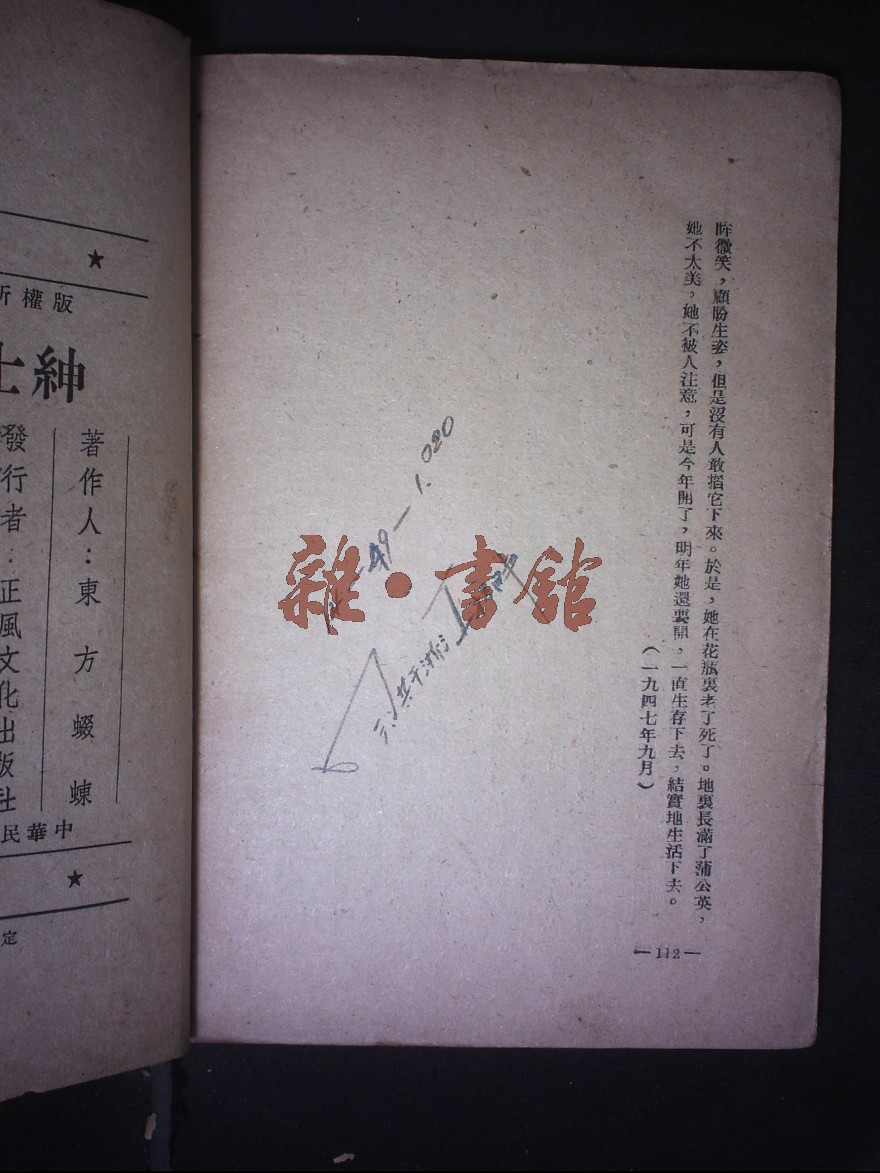 眸微笑，顧盼生姿，但是沒有人敢摺它下來。於是，她在花瓶裏老了死了。地裏長滿了蒲公英，
她不太美，她不被人注意，可是今年開了，明年她還要開，一直生存下去，結實地生活下去。
（一九四七年九月）
—112—
49—1.020
雜·書館
版權所
紳士
著作人：東方蝃蝀
發行者：正風文化出版社
中華民
定